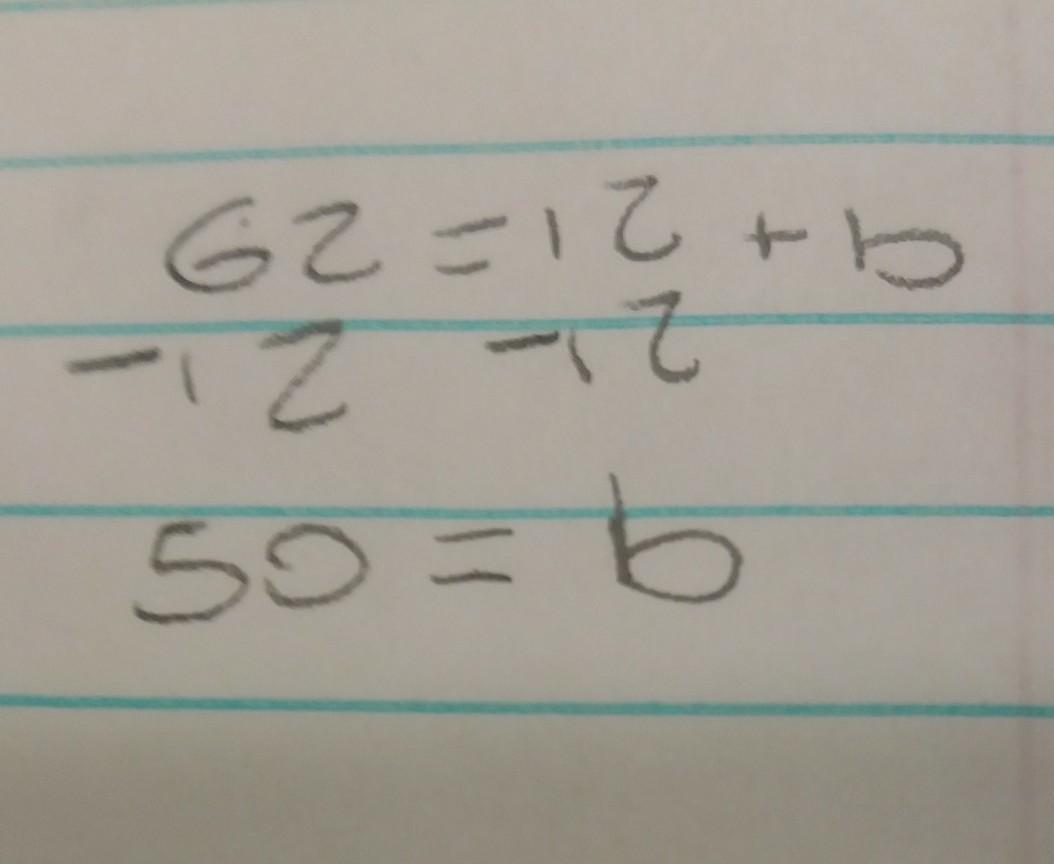 62 = 12 + b
-12 -12
50 = b